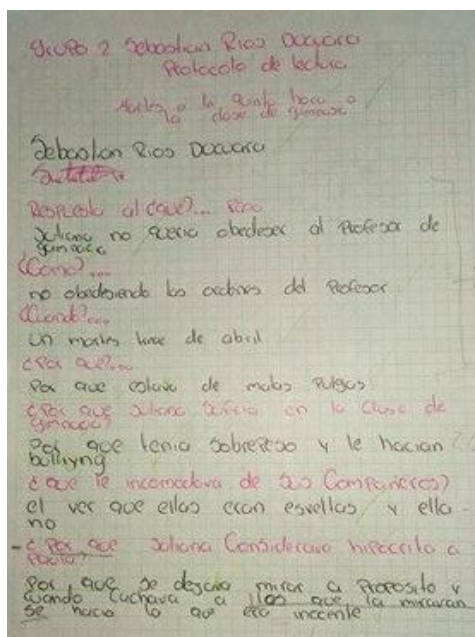 grupo 2 Sebastian Rios
Protocolo de lectura
Martes a la quinta hora o
la clase de gimnasia
Sebastian Rios
Respuesta al que?...
Juliana no queria obedeser al Profesor de
gimnacia
¿Como?...
no obedesiendo las ordenes del Profesor
¿Cuando?...
un martes de abril
¿Por que?...
Por que estava de malas Pulgas
¿Por que Juliana Sufria en la clase de
gimnacia?
Por que tenia Sobrepeso y le hacian
bullyng
¿que le incomodava de sus Compañeros?
el ver que ellas eran esveltas y ella
no
- ¿Por que Juliana Considerava hipocrita a
Paola?
Por que se dejava mirar a Proposito y
cuando a los que la miravan
se hacia la que era inocente